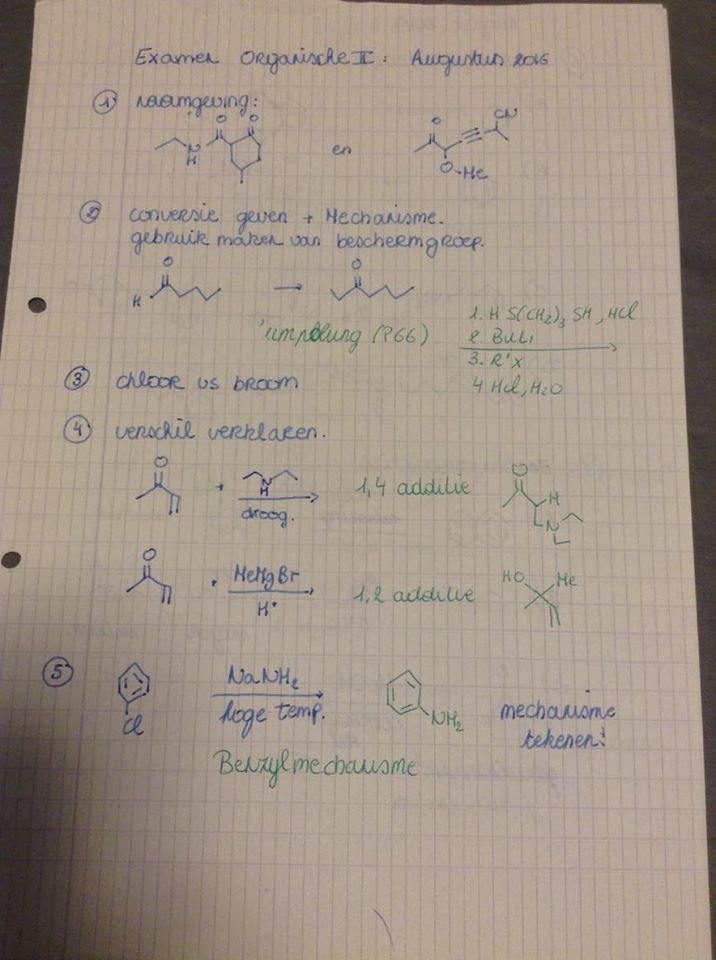 Examen Organische II: Augustus 2016
① naamgeving:
O O
N
H
en
O
CN
O-Me
② conversie geven + Mechanisme.
gebruik maken van beschermgroep.
O
H
→
O
'umpolung (P66)
1. HS(CH₂)₃SH, HCl
2. BuLi
3. R'X
4 HCl, H₂O
③ chloor vs broom
④ verschil verklaren.
O
+
N
H
droog.
1,4 additie
O
H
N
O
+ MeMgBr
H⁺
1,2 additie
HO Me
⑤
Cl
NaNH₂
hoge temp.
NH₂
mechanisme
tekenen!
Benzylmechanisme